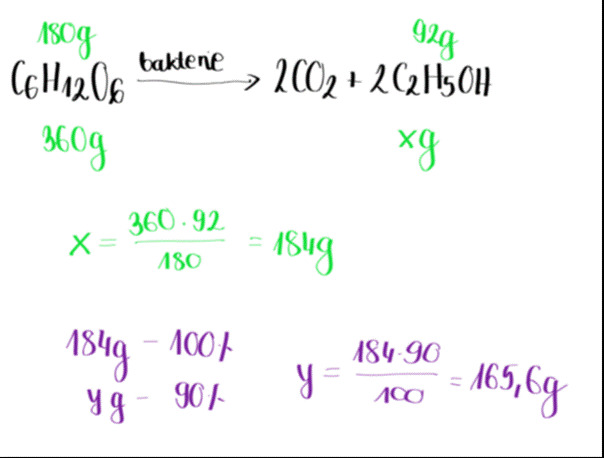 180g 92g
C₆H₁₂O₆ bakterie → 2CO₂ + 2C₂H₅OH
360g xg
x = 360 · 92 / 180 = 184g
184g - 100%
y g - 90%
y = 184·90 / 100 = 165,6g